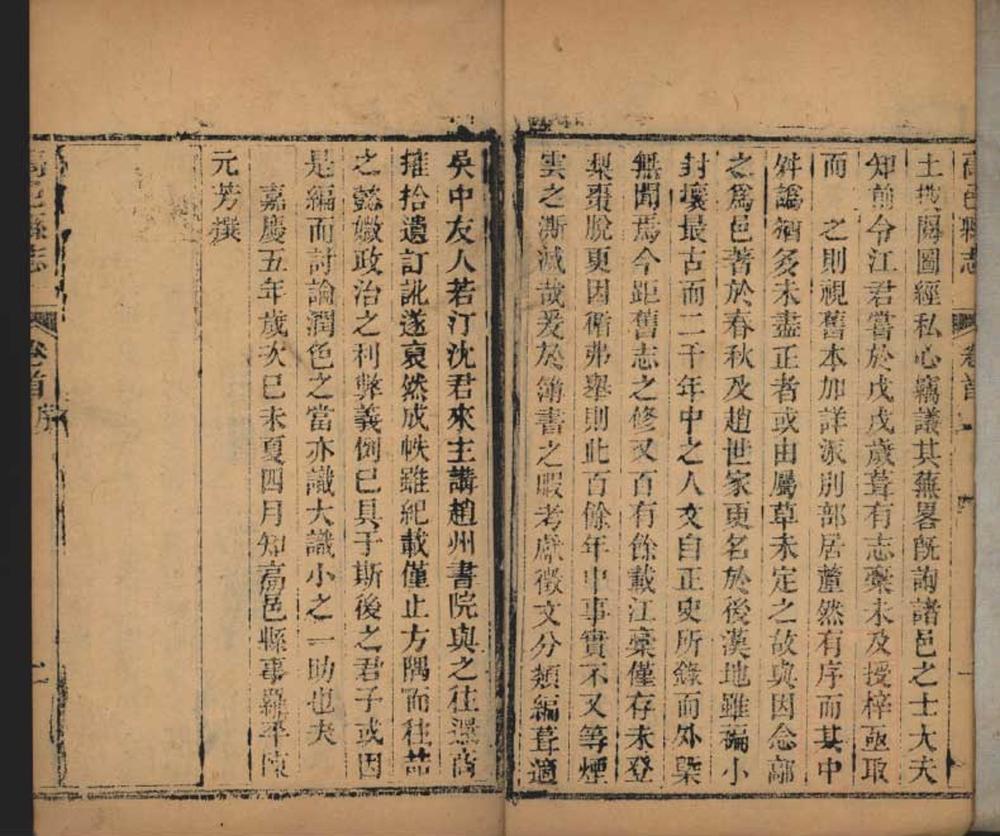 高邑縣志 卷首
土攬閱圖經私心竊議其蕪畧旣詢諸邑之士大夫
知前令江君嘗於戊戌歲葺有志藁未及授梓亟取
而 之則視舊本加詳派別部居釐然有序而其中
舛譌猶多未盡正者或由屬草未定之故與因念鄗
之爲邑著於春秋及趙世家更名於後漢地雖褊小
封壤最古而二千年中之人文自正史所錄而外槩
無聞焉今距舊志之修又百有餘載江藁僅存未登
梨棗脫更因循弗舉則此百餘年中事實不又等煙
雲之澌滅哉爰於簿書之暇考獻徵文分類編葺適
吳中友人若汀沈君來主講趙州書院與之往還商
搉拾遺訂訛遂裒然成帙雖紀載僅止方隅而往喆
之懿媺政治之利弊義例已具于斯後之君子或因
是編而討論潤色之當亦識大識小之一助也夫
嘉慶五年歲次己未夏四月知高邑縣事羅平陳
元芳撰
高邑縣志 卷首 序 一